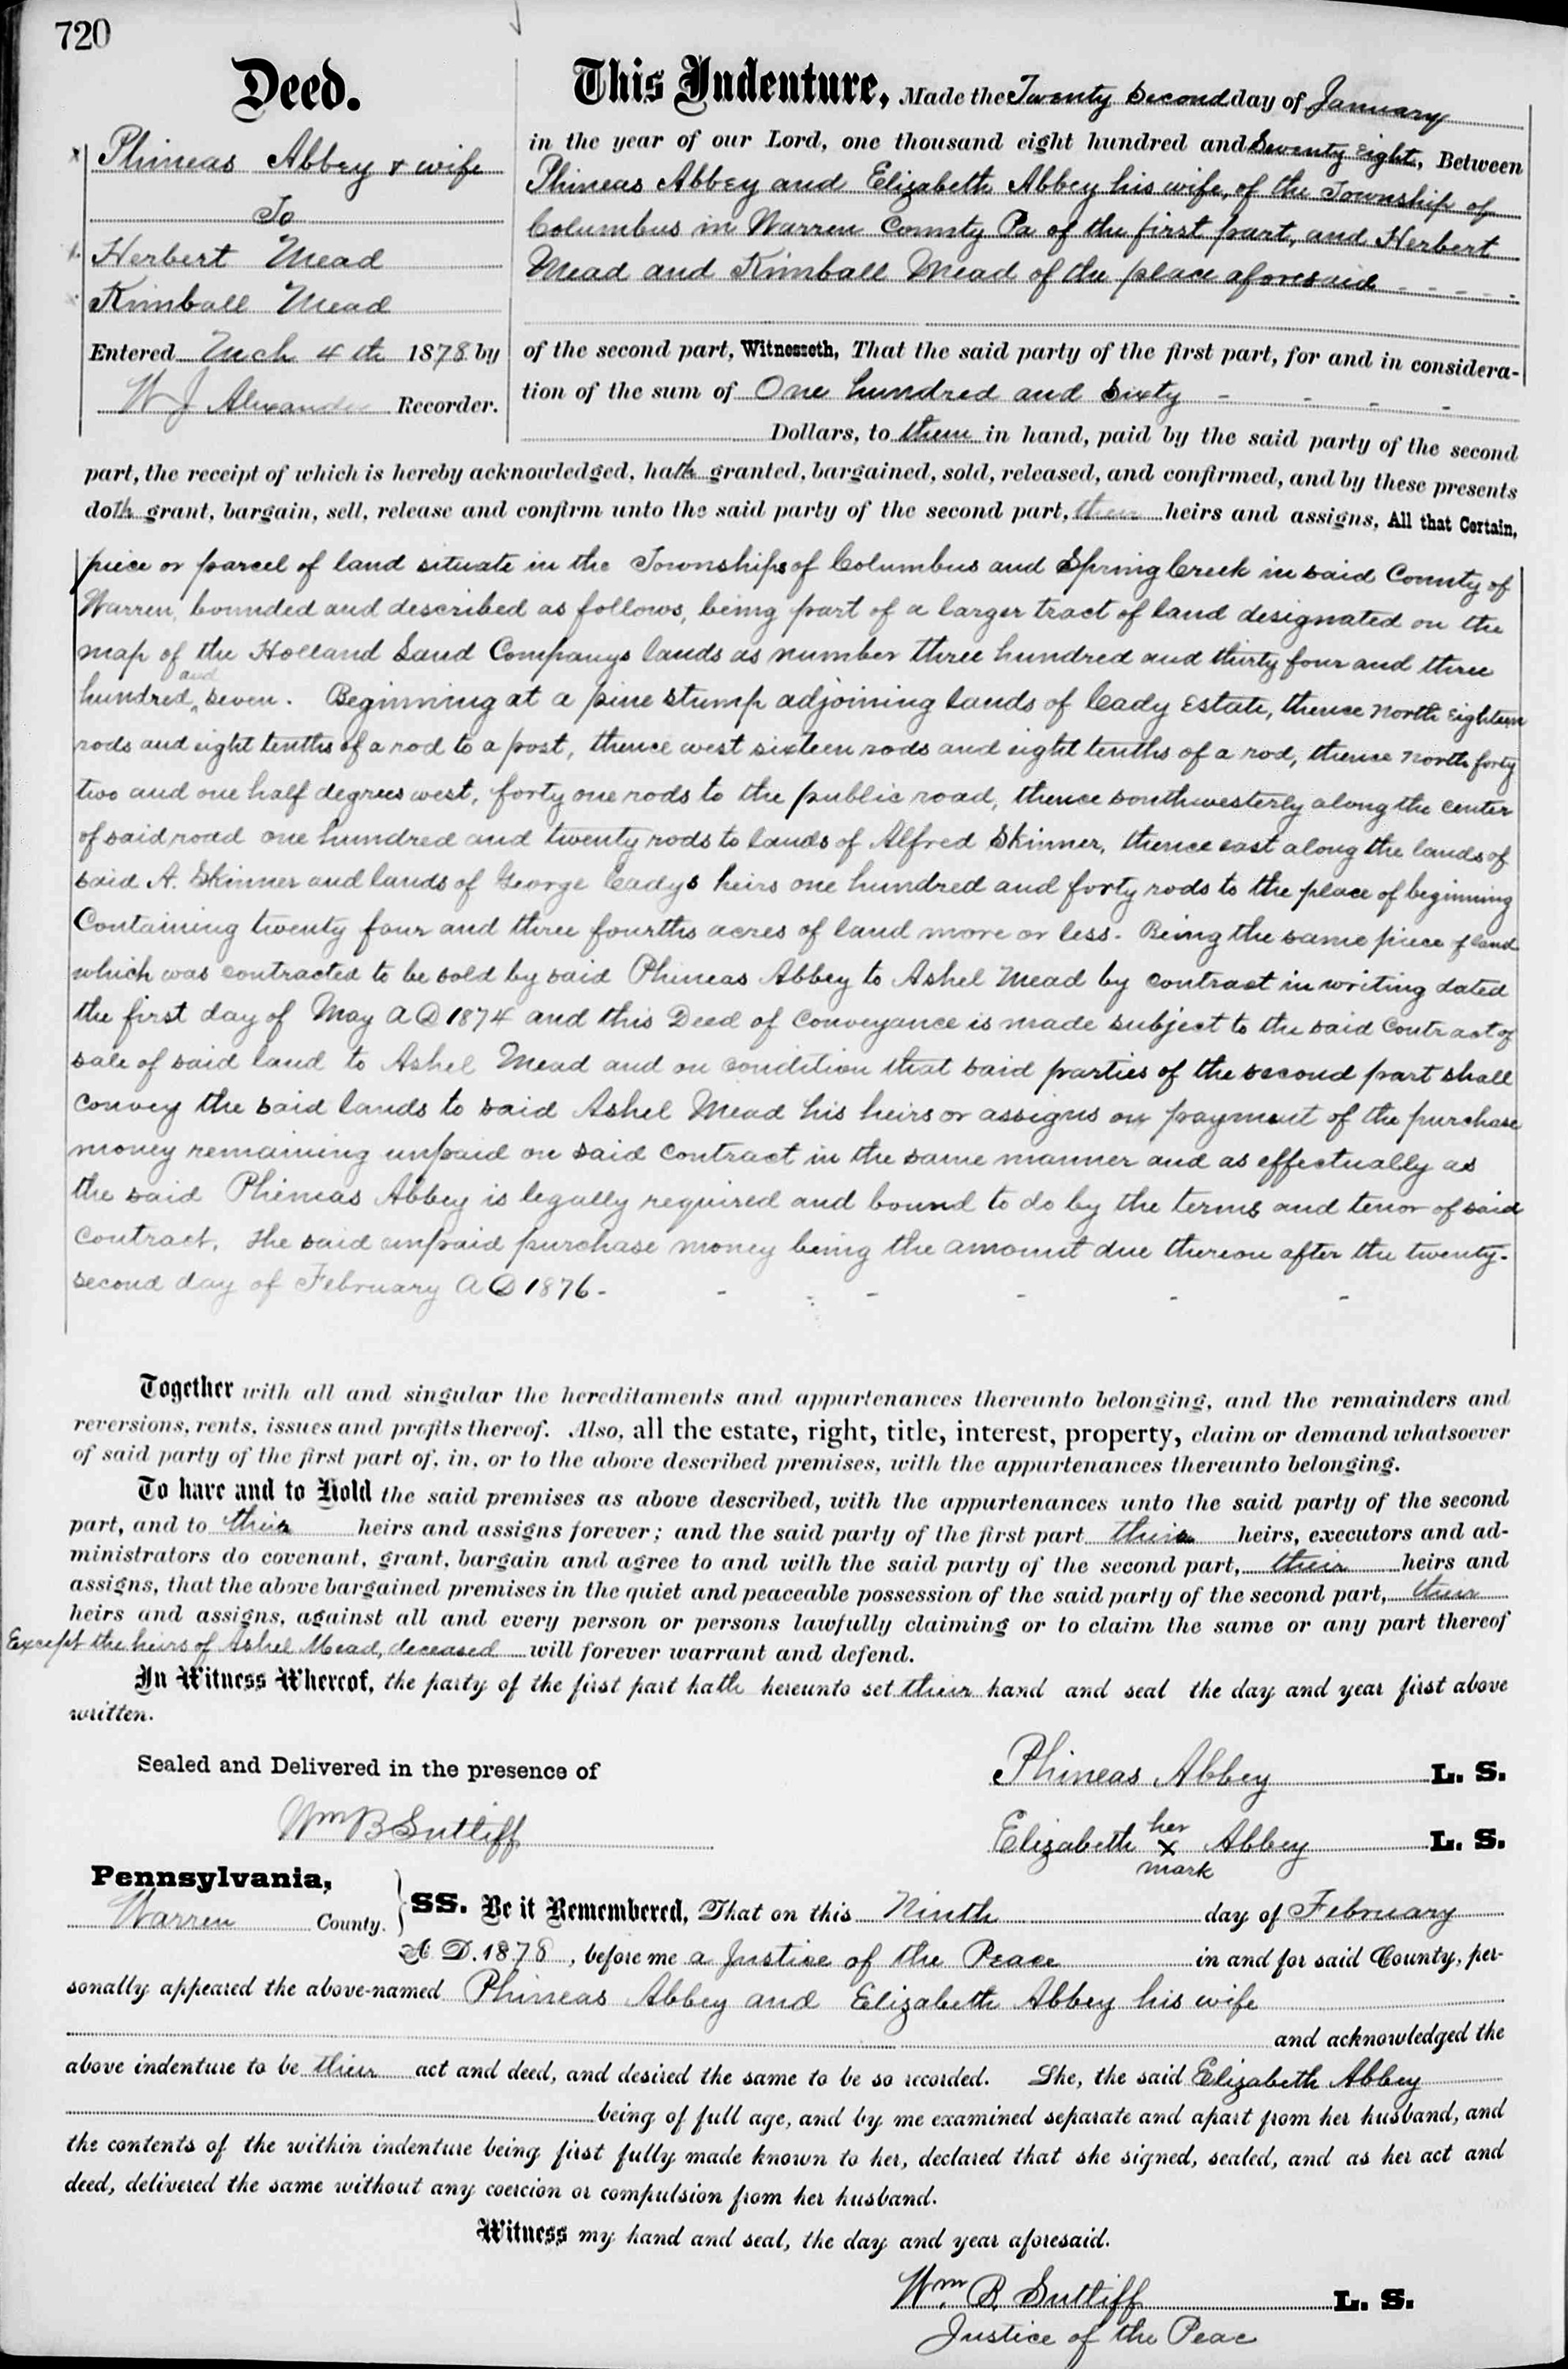 720
Deed.
Phineas Abbey & wife
To
Herbert Mead
Kimball Mead
Entered Mch 4th 1878 by
W J Alexander Recorder.
This Indenture, Made the Twenty Second day of January
in the year of our Lord, one thousand eight hundred and Seventy Eight, Between
Phineas Abbey and Elizabeth Abbey his wife, of the Township of
Columbus in Warren County Pa of the first part, and Herbert
Mead and Kimball Mead of the place aforesaid - - - - -
of the second part, Witnesseth, That the said party of the first part, for and in considera-
tion of the sum of One hundred and Sixty - - - -
Dollars, to them in hand, paid by the said party of the second
part, the receipt of which is hereby acknowledged, hath granted, bargained, sold, released, and confirmed, and by these presents
doth grant, bargain, sell, release and confirm unto the said party of the second part, their heirs and assigns, All that Certain,
piece or parcel of land situate in the Townships of Columbus and Spring Creek in said County of
Warren, bounded and described as follows, being part of a larger tract of land designated on the
map of the Holland Land Companys lands as number three hundred and thirty four and three
hundred and seven. Beginning at a pine stump adjoining lands of Cady Estate, thence North Eighteen
rods and eight tenths of a rod to a post, thence west sixteen rods and eight tenths of a rod, thence North forty
two and one half degrees west, forty one rods to the public road, thence southwesterly along the center
of said road one hundred and twenty rods to lands of Alfred Skinner, thence east along the lands of
said A. Skinner and lands of George Cadys heirs one hundred and forty rods to the place of beginning
Containing twenty four and three fourths acres of land more or less. Being the same piece of land
which was contracted to be sold by said Phineas Abbey to Ashel Mead by contract in writing dated
the first day of May A D 1874 and this Deed of conveyance is made subject to the said contract of
sale of said land to Ashel Mead and on condition that said parties of the second part shall
convey the said lands to said Ashel Mead his heirs or assigns on payment of the purchase
money remaining unpaid on said contract in the same manner and as effectually as
the said Phineas Abbey is legally required and bound to do by the terms and tenor of said
contract. The said unpaid purchase money being the amount due thereon after the twenty-
second day of February A D 1876 - - - - - - -
Together with all and singular the hereditaments and appurtenances thereunto belonging, and the remainders and
reversions, rents, issues and profits thereof. Also, all the estate, right, title, interest, property, claim or demand whatsoever
of said party of the first part of, in, or to the above described premises, with the appurtenances thereunto belonging.
To have and to Hold the said premises as above described, with the appurtenances unto the said party of the second
part, and to their heirs and assigns forever; and the said party of the first part their heirs, executors and ad-
ministrators do covenant, grant, bargain and agree to and with the said party of the second part, their heirs and
assigns, that the above bargained premises in the quiet and peaceable possession of the said party of the second part, their
heirs and assigns, against all and every person or persons lawfully claiming or to claim the same or any part thereof
Except the heirs of Ashel Mead, deceased will forever warrant and defend.
In Witness Whereof, the party of the first part hath hereunto set their hand and seal the day and year first above
written.
Sealed and Delivered in the presence of
Wm B Sutliff
Phineas Abbey L. S.
her
Elizabeth x Abbey L. S.
mark
Pennsylvania,
Warren County.
SS. Be it Remembered, That on this Ninth day of February
A. D. 1878, before me a Justice of the Peace in and for said County, per-
sonally appeared the above-named Phineas Abbey and Elizabeth Abbey his wife
and acknowledged the
above indenture to be their act and deed, and desired the same to be so recorded. She, the said Elizabeth Abbey
being of full age, and by me examined separate and apart from her husband, and
the contents of the within indenture being first fully made known to her, declared that she signed, sealed, and as her act and
deed, delivered the same without any coercion or compulsion from her husband.
Witness my hand and seal, the day and year aforesaid.
Wm. B. Sutliff L. S.
Justice of the Peac